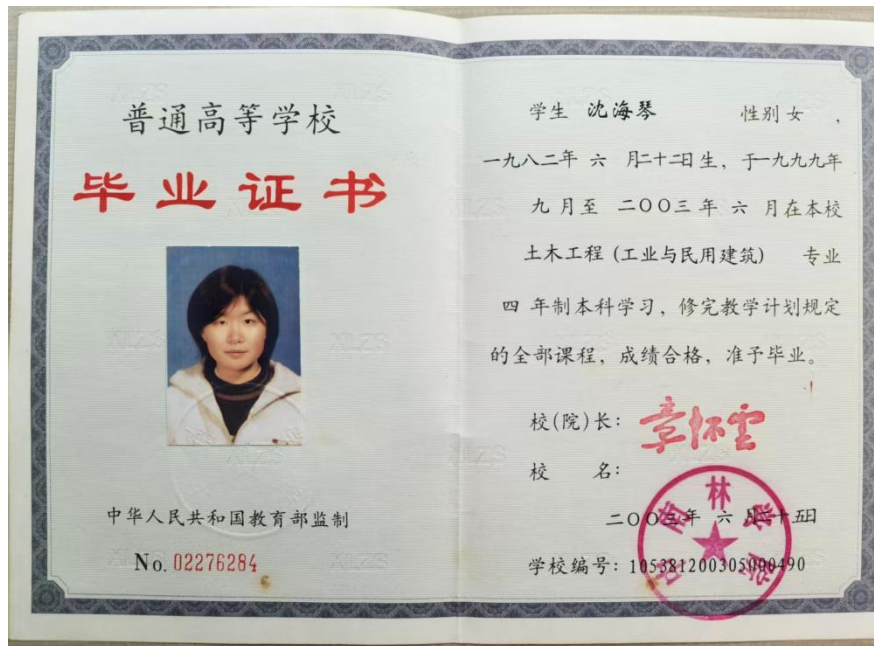 普通高等学校
毕业证书
中华人民共和国教育部监制
No. 02276284
学生 沈海琴 性别 女 ,
一九八二年 六 月二十二日生，于一九九九年
九 月至 二〇〇三 年 六 月在本校
土木工程 (工业与民用建筑) 专业
四 年制本科学习，修完教学计划规定
的全部课程，成绩合格，准予毕业。
校(院)长: 章怀云
校 名:
中南林学院
二〇〇三年 六 月二十五日
学校编号: 105381200305000490